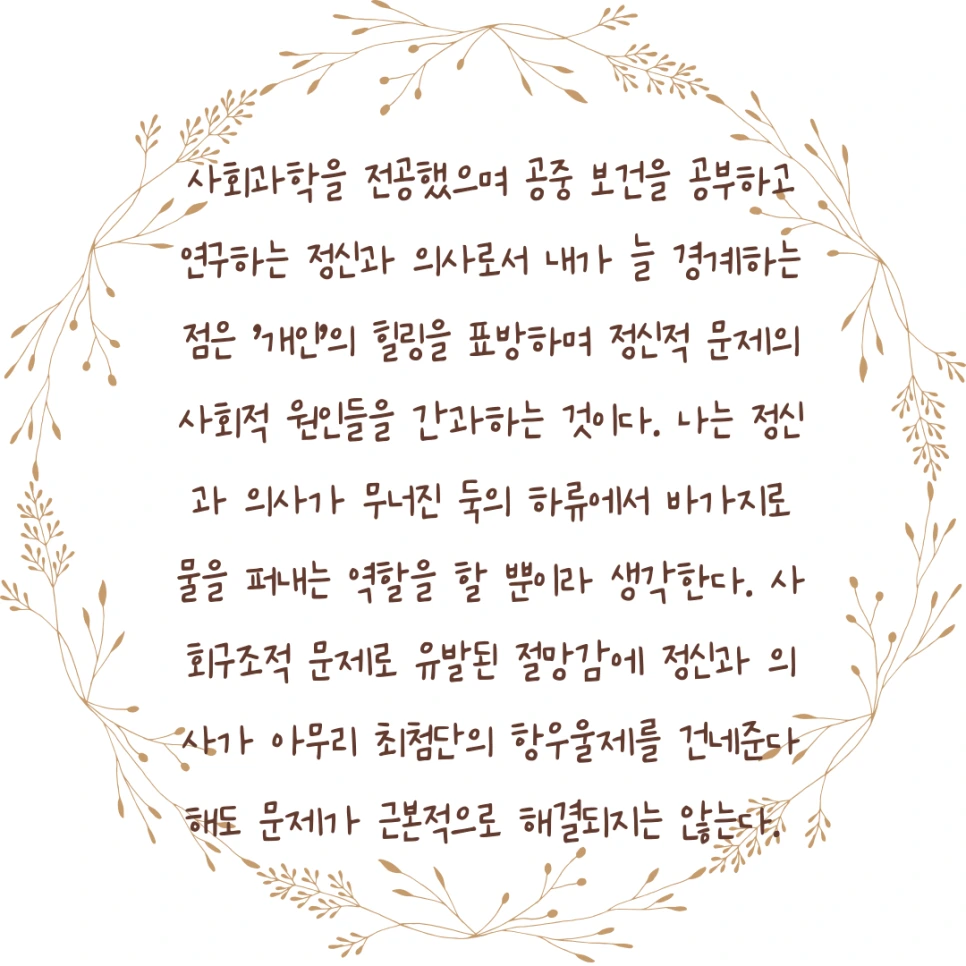 사회과학을 전공했으며 공중 보건을 공부하고
연구하는 정신과 의사로서 내가 늘 경계하는
점은 '개인'의 힐링을 표방하며 정신적 문제의
사회적 원인들을 간과하는 것이다. 나는 정신
과 의사가 무너진 둑의 하류에서 바가지로
물을 퍼내는 역할을 할 뿐이라 생각한다. 사
회구조적 문제로 유발된 절망감에 정신과 의
사가 아무리 최첨단의 항우울제를 건네준다
해도 문제가 근본적으로 해결되지는 않는다.